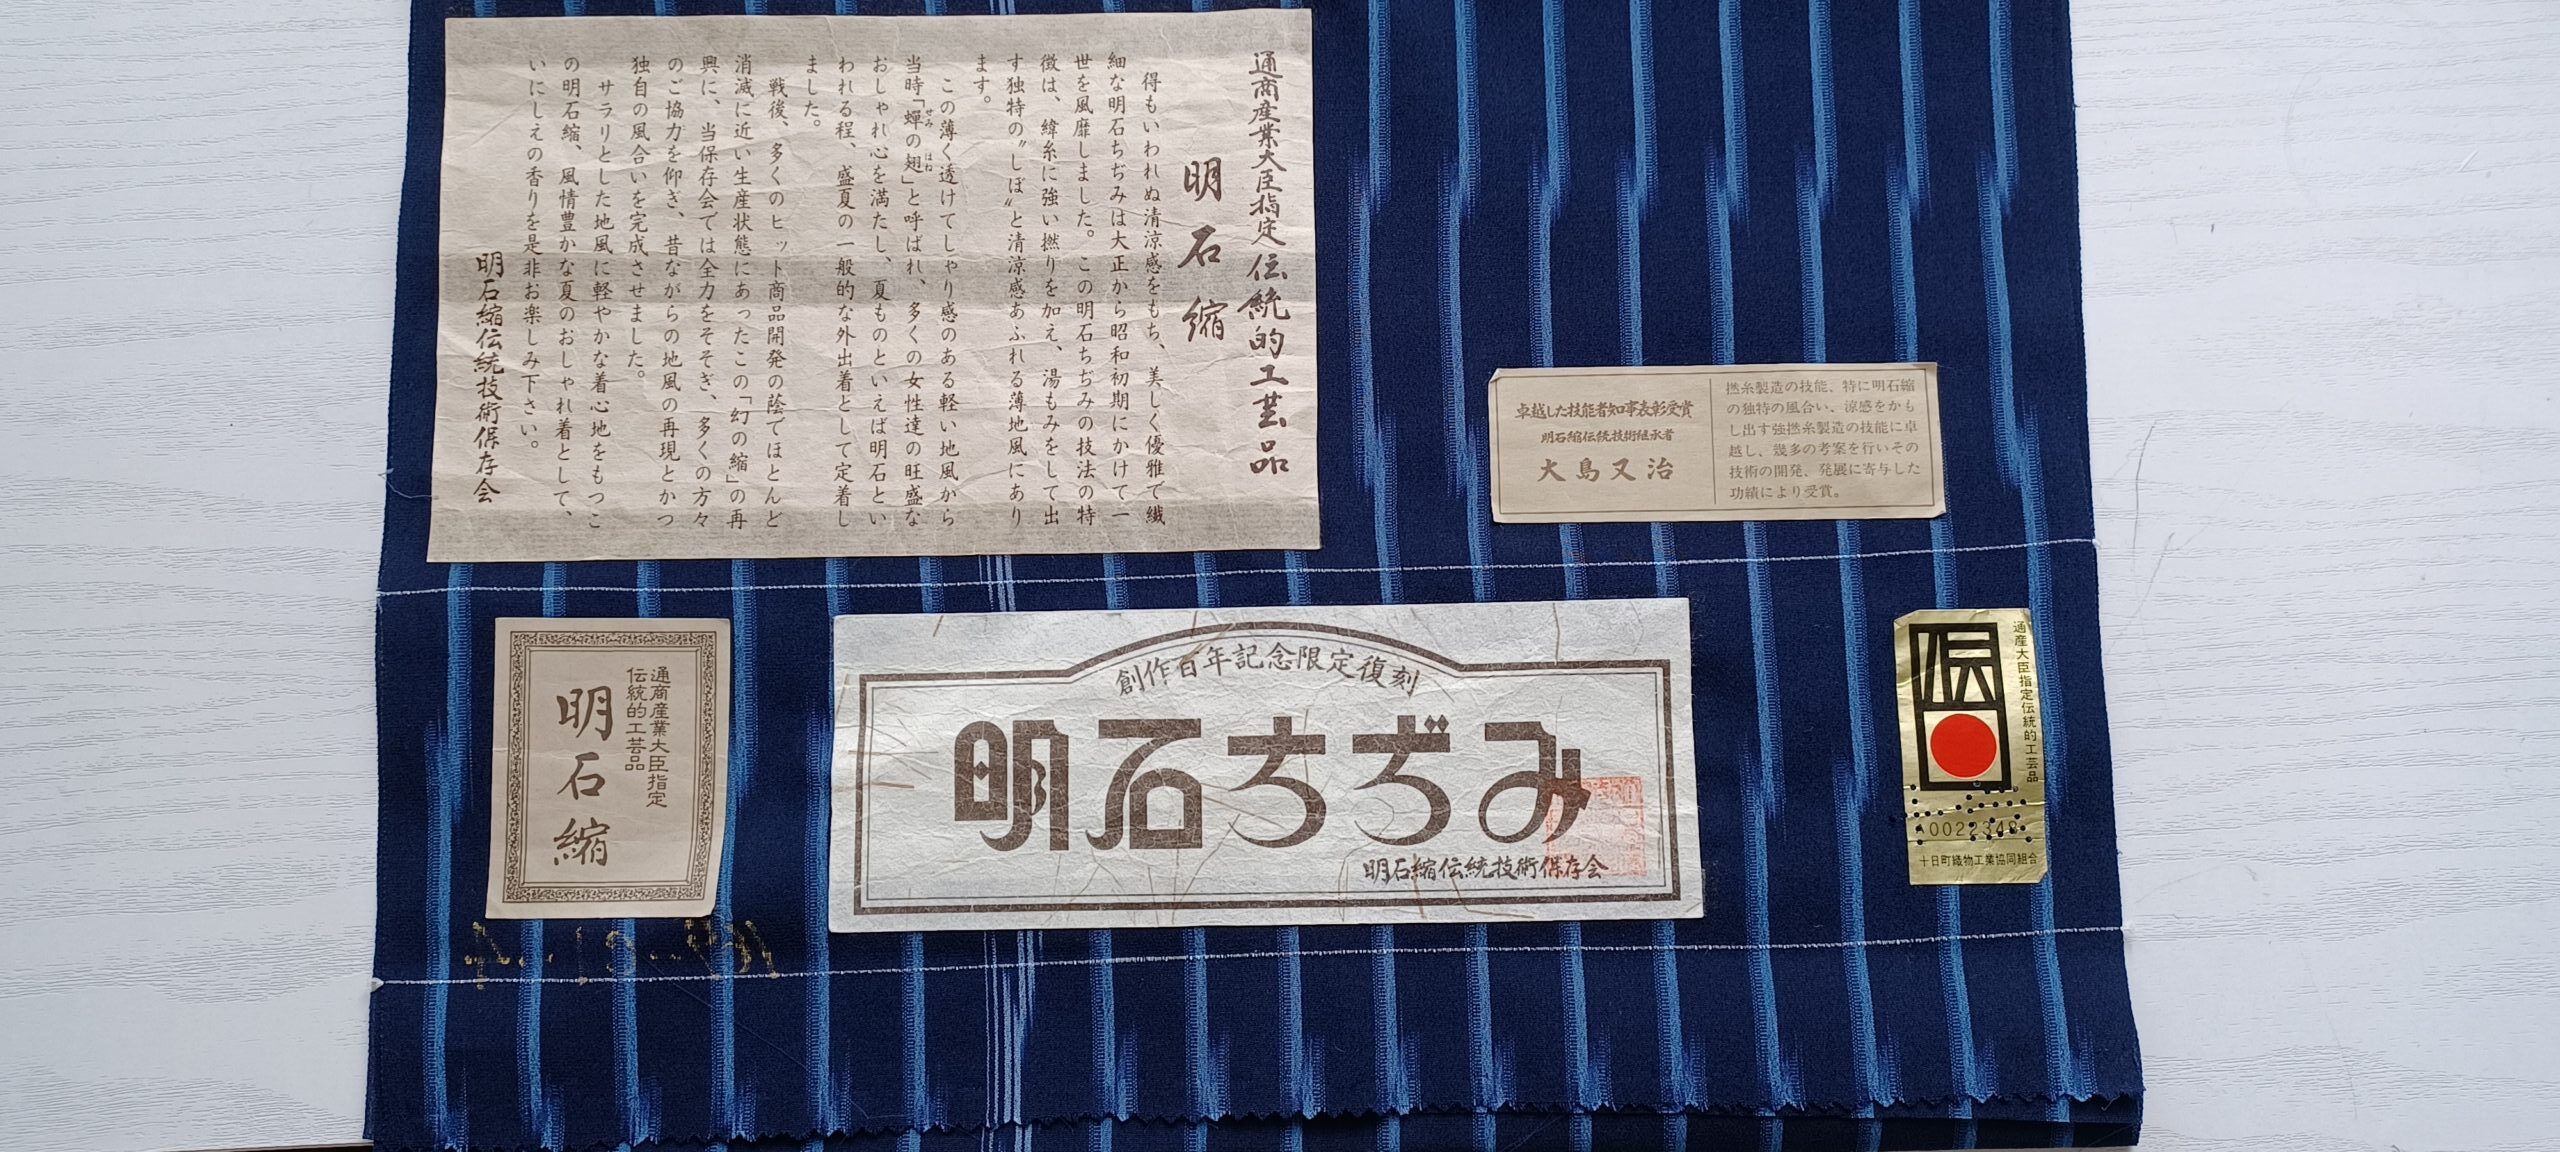 通商産業大臣指定伝統的工芸品
明石縮
得もいわれぬ清涼感をもち、美しく優雅で繊
細な明石ちぢみは大正から昭和初期にかけて一
世を風靡しました。この明石ちぢみの技法の特
徴は、緯糸に強い撚りを加え、湯もみをして出
す独特の〝しぼ〟と清涼感あふれる薄地風にあり
ます。
この薄く透けてしゃり感のある軽い地風から
当時「蟬の翅」と呼ばれ、多くの女性達の旺盛な
せみ はね
おしゃれ心を満たし、夏ものといえば明石とい
われる程、盛夏の一般的な外出着として定着し
ました。
戦後、多くのヒット商品開発の蔭でほとんど
消滅に近い生産状態にあったこの「幻の縮」の再
興に、当保存会では全力をそそぎ、多くの方々
のご協力を仰ぎ、昔ながらの地風の再現とかつ
独自の風合いを完成させました。
サラリとした地風に軽やかな着心地をもつこ
の明石縮、風情豊かな夏のおしゃれ着として、
いにしえの香りを是非お楽しみ下さい。
明石縮伝統技術保存会
卓越した技能者知事表彰受賞
明石縮伝統技術継承者
大島又治
撚糸製造の技能、特に明石縮
の独特の風合い、涼感をかも
し出す強撚糸製造の技能に卓
越し、幾多の考案を行いその
技術の開発、発展に寄与した
功績により受賞。
通商産業大臣指定
伝統的工芸品
明石縮
創作百年記念限定復刻
明石ちぢみ
明石縮伝統技術保存会
通産大臣指定伝統的工芸品
伝
A0022348
十日町織物工業協同組合